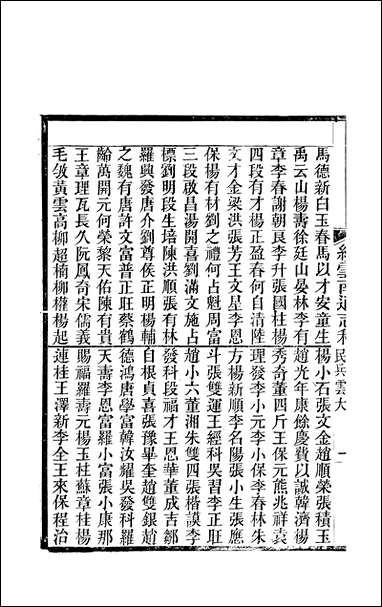 馬德新白玉春馬以才安童生楊小石張文金趙順榮張積玉
禹云山楊壽徐廷山晏林李有趙光年康餘慶費以誠韓濟楊
章李春謝朝良李升張國柱楊秀奇董四斤王保元熊兆祥袁
四段有才楊正盈春何自清陸理發李小元李小保李春林朱
文才金梁洪張芳王文星李恩方楊新順李名陽張小生張應
保楊有材劉之禮何占魁周富斗張雙運王經科吳習李正旺
三段啟昌湯開喜劉滿文施占趙小六董湘朱雙四張楷謨李
標劉明段生培陳洪順張有林發科段福才王恩華董成吉鄒
羅興發唐介劉尊侯正明楊輔自根貞喜張豫畢奎趙雙銀趙
之魏有唐許文富普正旺蔡鶴德鴻唐學富韓汝耀吳發科羅
齡萬開元何榮黎天佑陳有貴天壽李恩富羅小富張小康那
王章理瓦長久阮鳳奇宋儒義賜福羅壽元楊玉桂蘇章桂楊
毛皴黃雲高柳超楠柳權楊起蓮桂王澤新李全王來保程治
續雲南通志稿